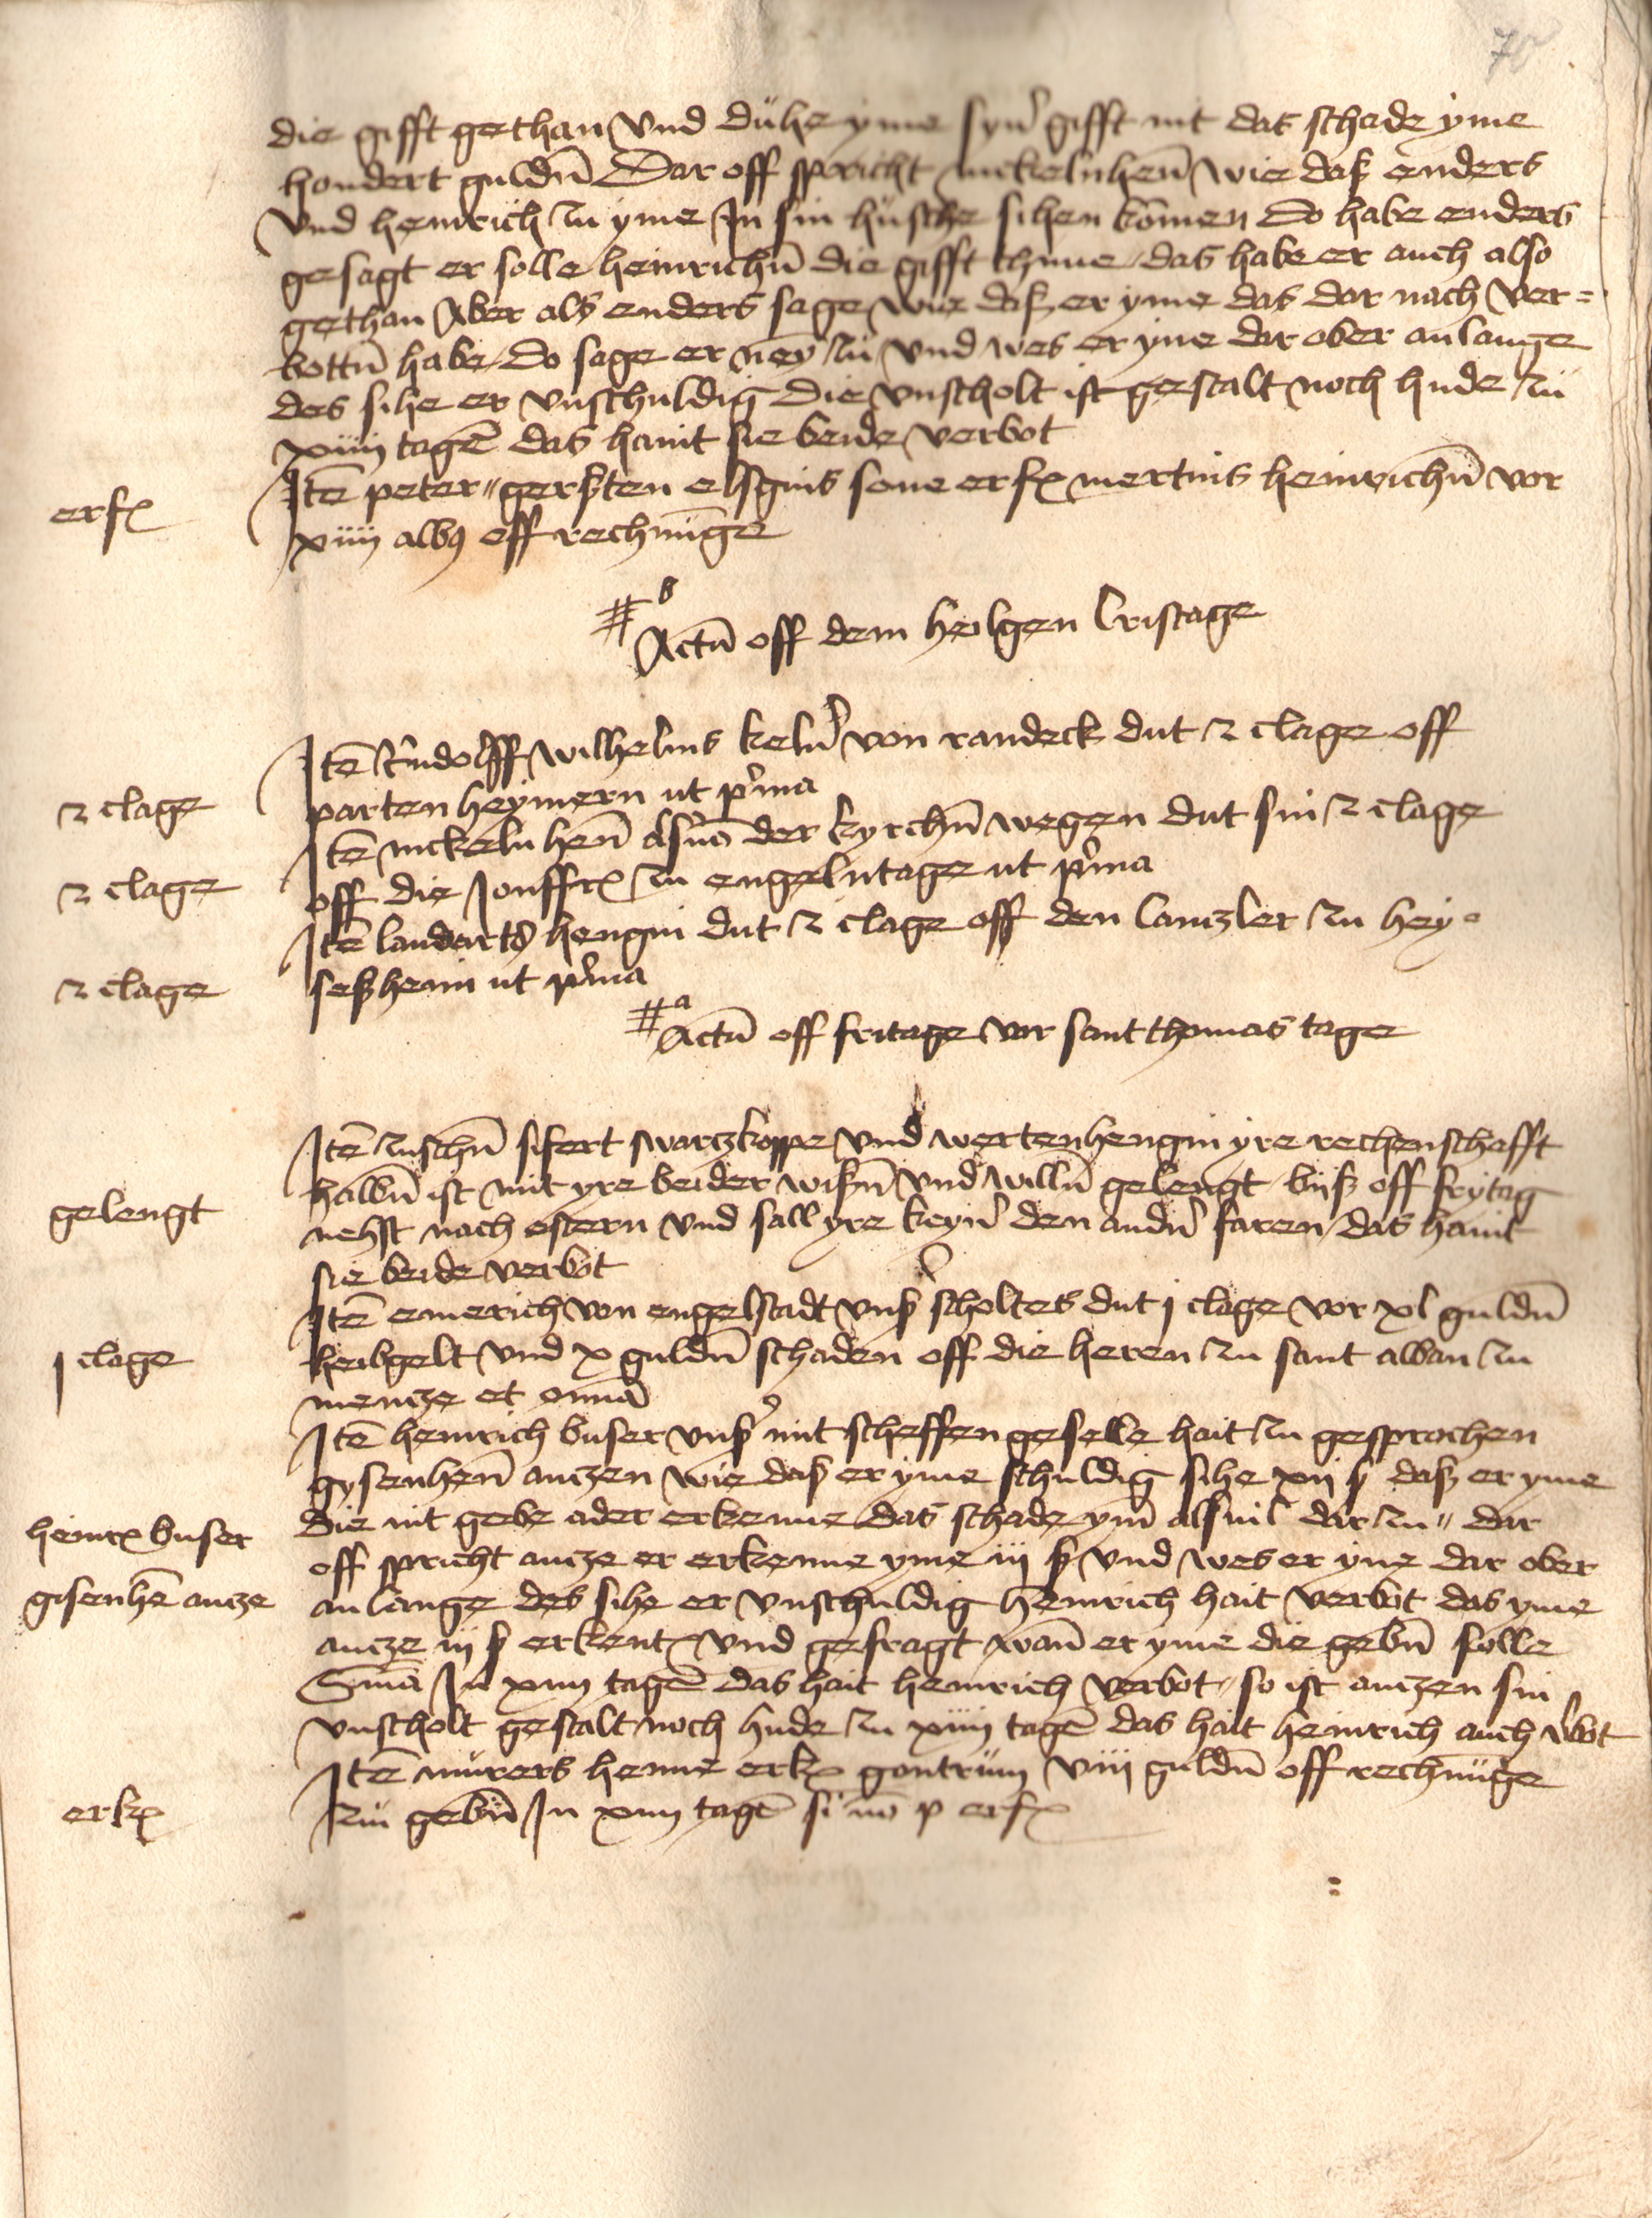 70
die gifft gethan vnd duhe yme syn̄ gifft nit das schade yme
hondert guldn̄ Dar off spricht nickelnhen̄ wie daß enders
vnd heinrich zu yme In sin husche sihen komen do habe enders
gesagt er solle heinrichn̄ die gifft thune das habe er auch also
gethan Aber als enders sage wie daß er yme das dar nach ver=
bottn̄ habe do sage er ney zu vnd wes er yne dar ober anlange
des sihe er vnschuldig Die vnscholt ist gestalt noch hude zu
xiiij tagē das hant sie beide verbot
erkꝭ
Itē peter gersten elsgins sone erkꝭ mertins heinrichn̄ vor
xiiij albꝰ off rechnūge
# b
Actū off dem heilgen Cristage
2 clage
Itē Rudolff wilhelms keln̄ von randeck dut 2 clage off
partenheymern ut pͥma
2 clage
Itē nickeln hen̄ der kyrchn̄ wegen dut sin 2 clage
off die Jonffrꝭ zu engelntage ut pͥma
2 clage
Itē landarts hengin dut 2 clage off den Canczler zu hey-
seßheim ut pͥma
# a
Actū off fritage vor sant thomas tage
gelengt
Itē zuschn̄ sifert swarczkoppe vnd wertenhengin yre rechenschafft
halbn̄ ist mit yre beider wißn̄ vnd willn̄ gelengt biß off frytag
nehst nach ostern vnd sall yre keyn̄ den andn̄ faren das hant
sie beide verbot
j clage
Itē emerich von engelstadt vnß scholtes dut j clage vor xl guldn̄
heibgelt vnd x guldn̄ schaden off die heren zu sant alban zu
mencze et om̄ia
heinrꝭ buser
gisenhē ancze
Itē heinrich buser vnß mit scheffen geselle hait zu gesprochen
gysenhen̄ anczen wie daß er yme schuldig sihe xij ß daß er yme
die nit gebe ader erkenne das schade ym̄ alsuil dar zu dar
off spricht ancze er erkenne yme iij ß vnd wes er yne dar ober
anlange des sihe er vnschuldig heinrich hait verbot das yme
ancze iij ß erkent vnd gefragt wan̄ er yme die gebn̄ solle
S̄ma In xiiij tagē das hait heinrich verbot so ist anczen sin
vnscholt gestalt noch hude zu xiiij tagē das hait heinrich auch v̄bot
erkꝭ
Itē murers henne erkꝭ gontrum viij guldn̄ off rechnūge
zu gebn̄ In xiiij tagē si nō p erkꝭ